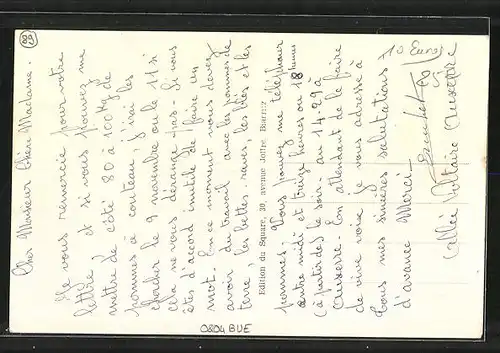 Cher Monsieur Chère Madame.
Je vous remercie pour votre
lettre, et si vous pouvez me
mettre de côté 80 à 100 kg de
pommes à couteau, j'irai les
chercher le 9 novembre ou le 11 si
cela ne vous dérange pas - Si vous
êtes d'accord inutile de faire un
mot. En ce moment vous devez
avoir du travail avec les pommes de
terre, les bettes raves, les blés et les
Edition du Square, 30, avenue Joffre
pommes. Vous pouvez me téléphoner
entre midi et treize heures ou 18 heures
(à partir de) le soir au 14-29 à
Auxerre. En attendant de le faire
de vive voix, je vous adresse à
tous mes sincères salutations
d'avance Merci
Allée Voltaire Auxerre
10 Euros
0804 BUE